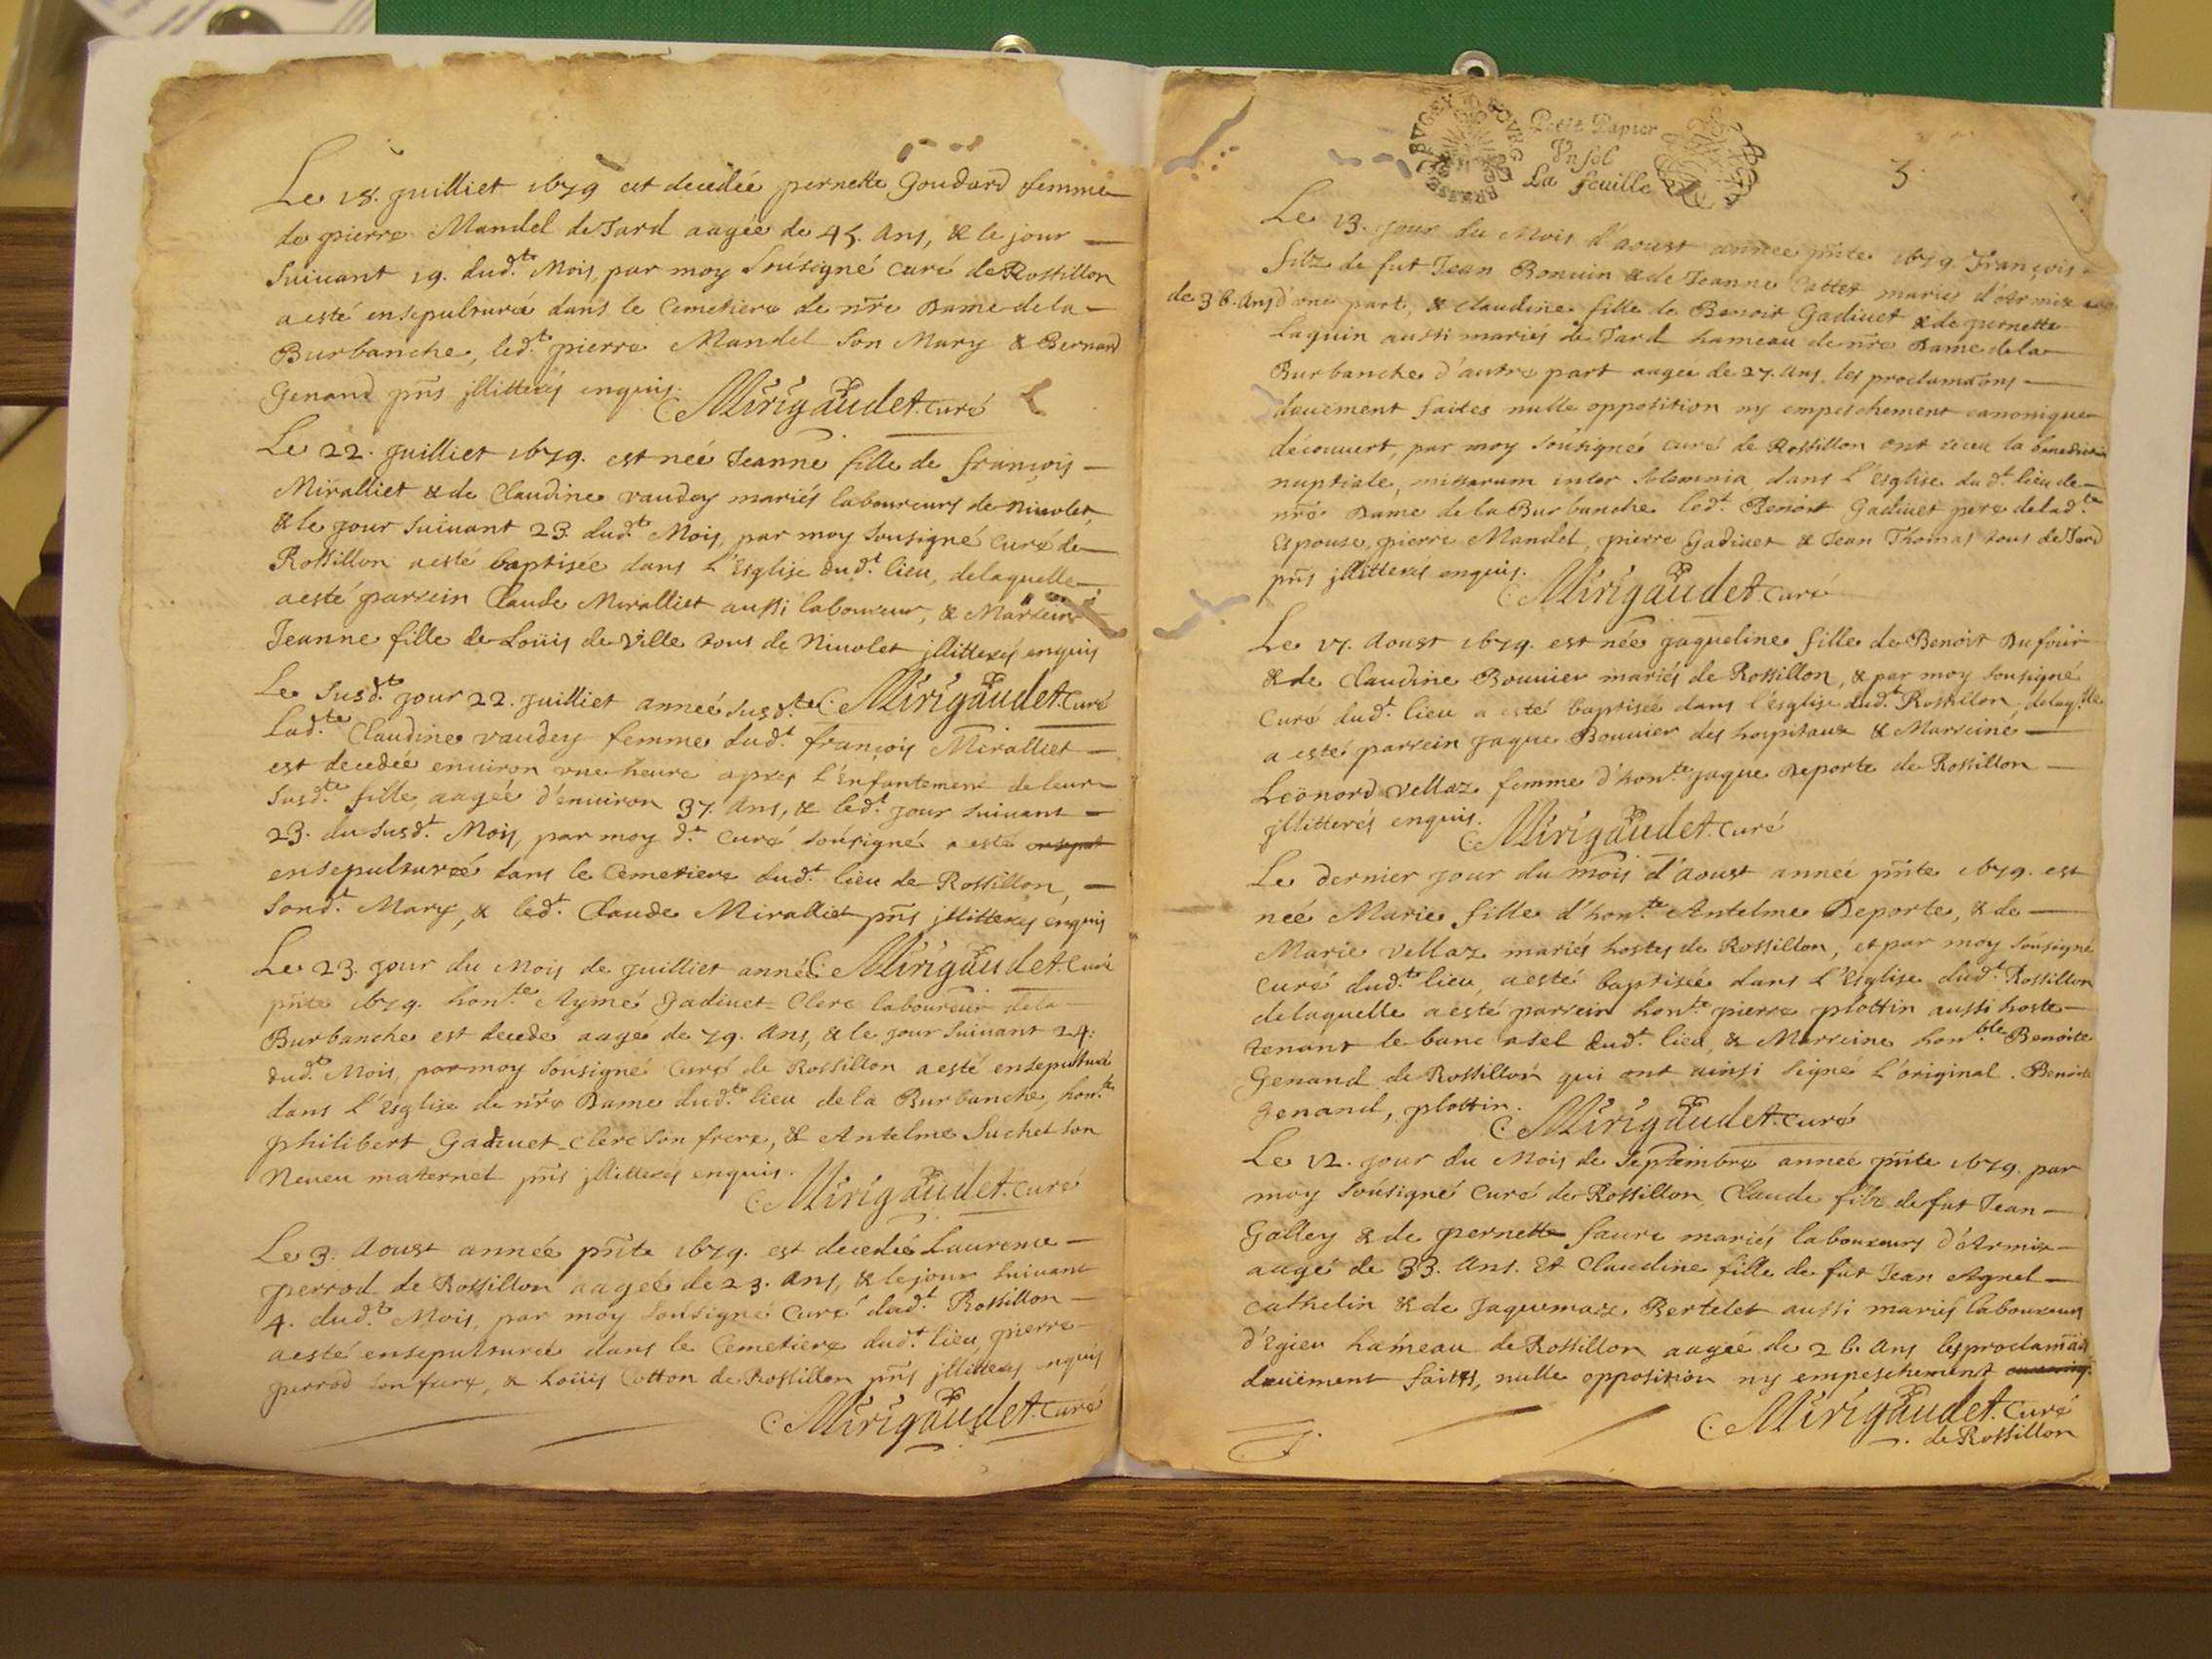 Le 18. Juilliet 1679 est decedée pernette Goudard femme
de pierre Mandel de Jard aagée de 45. Ans, & le jour
Suivant 19. dud.t Mois, par moy Sousigné Curé de Rossillon
a esté ensepulturée dans le Cemetiere de nre Dame de la
Burbanche, led.t pierre Mandel Son Mary & Bernard
Genand pnts jllitterés enquis. C. Mirigaudet. Curé
Le 22. Juilliet 1679. est née Jeanne fille de françois
Miralliet & de Claudine vaudey mariés laboureurs de Nivolet,
& le jour suivant 23. dud.t Mois, par moy sousigné Curé de
Rossillon a esté baptisée dans l'Esglise dud.t lieu, de laquelle
a esté parrein Claude Miralliet aussi laboureur, & Marreine
Jeanne fille de Loüis de ville tous de Nivolet jllitterés enquis
Le Susd.t jour 22. Juilliet année susd.te C. Mirigaudet. Curé
Lad.te Claudine vaudey femme dud.t françois Miralliet
est decedée environ une heure apres l'Enfantement de leur
Susd.te fille, aagée d'environ 37. Ans, & led.t jour suivant
23. du Susd.t Mois, par moy d.t Curé sousigné a esté
ensepulturée dans le Cemetiere dud.t lieu de Rossillon,
Sond.t Mary, & led.t Claude Miralliet pnts jllitterés enquis
Le 23. jour du Mois de Juilliet année C. Mirigaudet. Curé
pnte 1679. hon.te Aymé Gadivet-Clerc laboureur de la
Burbanche est decedé aagé de 79. Ans, & le jour suivant 24.
dud.t Mois, par moy sousigné Curé de Rossillon a esté ensepulturé
dans l'Esglise de nre Dame dud.t lieu de la Burbanche, hon.te
philibert Gadivet-Clerc son frere, & Antelme Suchet son
Neveu maternel pnts jllitterés enquis.
C. Mirigaudet. Curé
Le 3. Aoust année pnte 1679. est decedée Laurence
perrod de Rossillon aagée de 23. Ans, & le jour suivant
4. dud.t Mois, par moy sousigné Curé dud.t Rossillon
a esté ensepulturée dans le Cemetiere dud.t lieu, pierre
perrod son frere, & Loüis Cotton de Rossillon pnts jllitterés enquis
C. Mirigaudet. Curé
Petit Papier
Un sol
La feuille
3
Le 13. jour du Mois d'Aoust année pnte 1679. François
filz de fut Jean Bonvin & de Jeanne Cattet mariés d'Armix aagé
de 36. Ans d'une part, & Claudine fille de Benoit Gadivet & de pernette
Laguin aussi mariés de Jard hameau de nre Dame de la
Burbanche d'autre part aagée de 27. Ans, les proclamaons
deuëment faites nulle opposition ny empeschement canonique
découvert, par moy sousigné curé de Rossillon ont receu la benediction
nuptiale, missarum inter solemnia dans l'Esglise dud.t lieu de
nre Dame de la Burbanche led.t Benoit Gadivet pere de lad.te
Espouse, pierre Mandel, pierre Gadivet & Jean Thomas tous de Jard
pnts jllitterés enquis. C. Mirigaudet. Curé
Le 17. Aoust 1679. est née Jaqueline fille de Benoit Dufour
& de Claudine Bouvier mariés de Rossillon, & par moy sousigné
Curé dud.t lieu a esté baptisée dans l'esglise dud.t Rossillon, delaq.lle
a esté parrein Jaque Bouvier des hospitaux & Marreine
Leonord vellaz femme d'hon.te Jaque Deporte de Rossillon
jllitterés enquis. C. Mirigaudet. Curé
Le dernier jour du mois d'Aoust année pnte 1679. est
née Marie fille d'hon.te Antelme Deporte, & de
Marie vellaz mariés hostes de Rossillon, et par moy sousigné
Curé dud.t lieu, a esté baptisée dans l'Esglise dud.t Rossillon
de laquelle a esté parrein hon.te pierre plottin aussi hoste
tenant le banc a sel dud.t lieu, & Marreine hon.ble Benoite
Genand de Rossillon qui ont ainsi signé l'original. Benoite
Genand, plottin. C. Mirigaudet. Curé
Le 12. jour du Mois de Septembre année pnte 1679. par
moy sousigné Curé de Rossillon, Claude filz de fut Jean
Galley & de pernette faure mariés laboureurs d'Armix
aagé de 33. Ans. Et Claudine fille de fut Jean Agnel
Cathelin & de Jaquemaze Bertelet aussi mariés laboureurs
d'Egieu hameau de Rossillon aagée de 26. Ans les proclamaons
deuëment faites, nulle opposition ny empeschement
C. Mirigaudet. Curé
de Rossillon